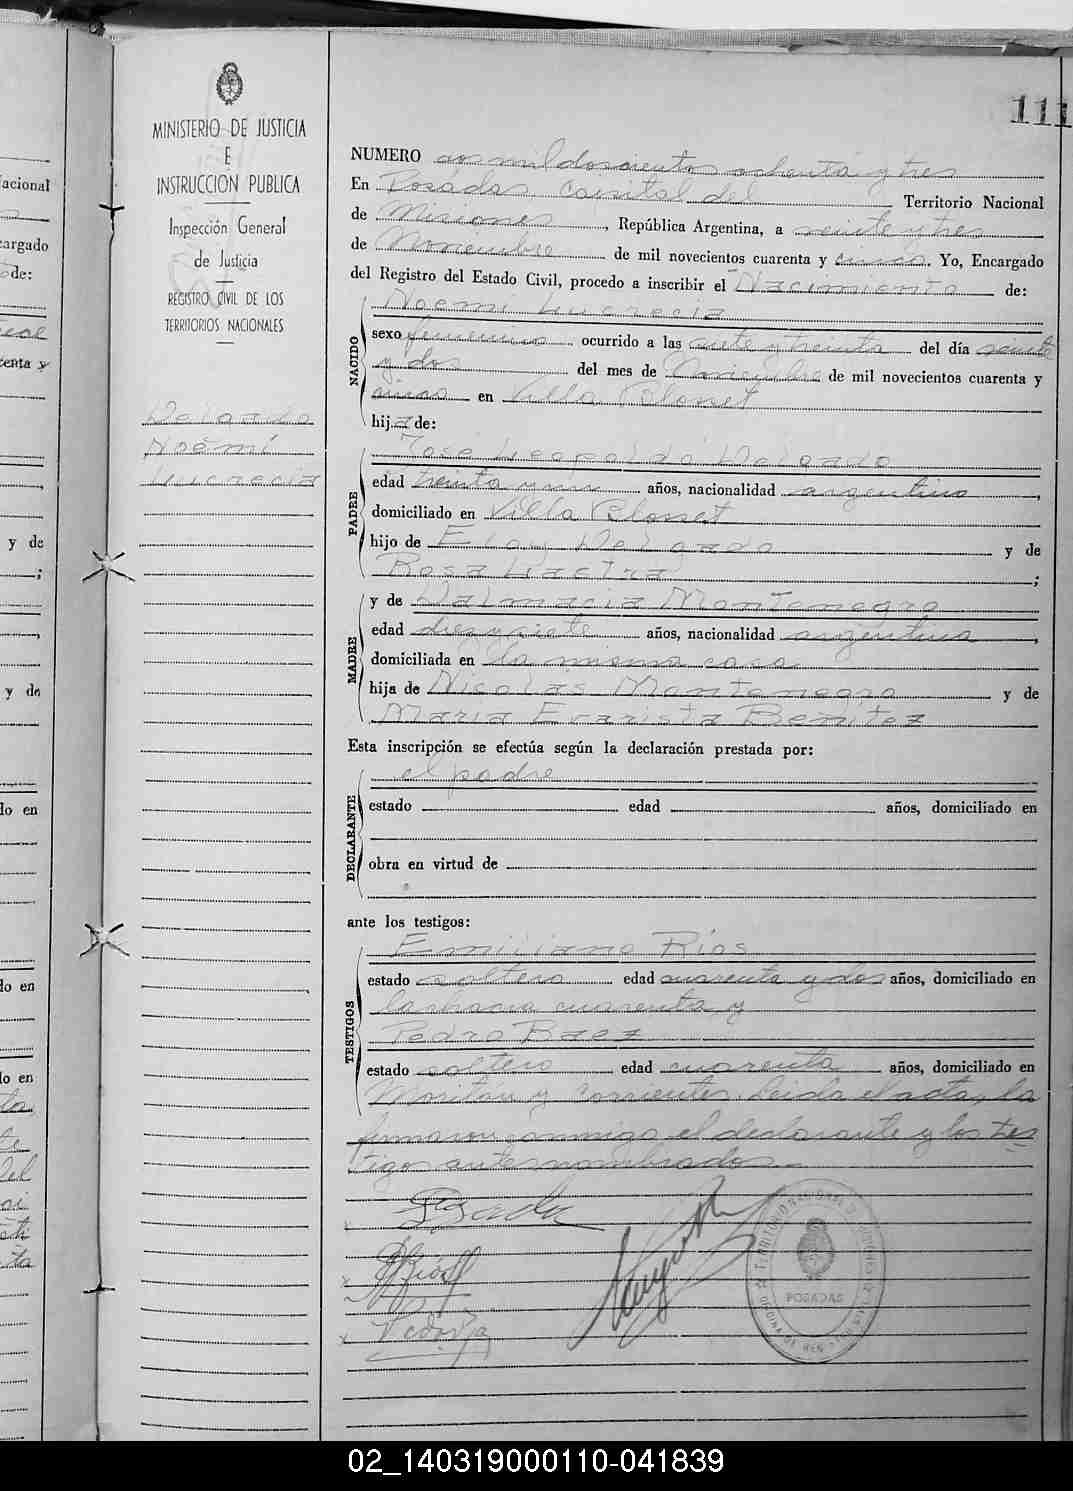 111
MINISTERIO DE JUSTICIA
E
INSTRUCCION PUBLICA
Inspección General
de Justicia
REGISTRO CIVIL DE LOS
TERRITORIOS NACIONALES
Delgado
Noemí
Lucrecia
NUMERO dos mil doscientos ochenta y tres
En Posadas Capital del Territorio Nacional
de Misiones, República Argentina, a veinte y tres
de Noviembre de mil novecientos cuarenta y cinco. Yo, Encargado
del Registro del Estado Civil, procedo a inscribir el Nacimiento de:
NACIDO
Noemí Lucrecia
sexo femenino ocurrido a las siete y treinta del día veinte
y dos del mes de Noviembre de mil novecientos cuarenta y
cinco en Villa Blosset
hija de:
PADRE
José Leopoldo Delgado
edad treinta y un años, nacionalidad argentino,
domiciliado en Villa Blosset
hijo de Eloy Delgado y de
Rosa;
MADRE
y de Dalmacia Montenegro
edad diez y siete años, nacionalidad argentina,
domiciliada en la misma casa
hija de Nicolás Montenegro y de
María Evarista Benítez
Esta inscripción se efectúa según la declaración prestada por:
DECLARANTE
el padre
estado edad años, domiciliado en
obra en virtud de
ante los testigos:
TESTIGOS
Emiliano Ríos
estado soltero edad cuarenta y dos años, domiciliado en
la chacra cuarenta y
Pedro Baez
estado soltero edad cuarenta años, domiciliado en
y Corrientes. Leída el acta, la
firmaron conmigo, el declarante y los tes-
tigos antes nombrados.
POSADAS
acional
cargado
de:
enta y
y de
;
y de
do en
do en
do en
02_140319000110-041839